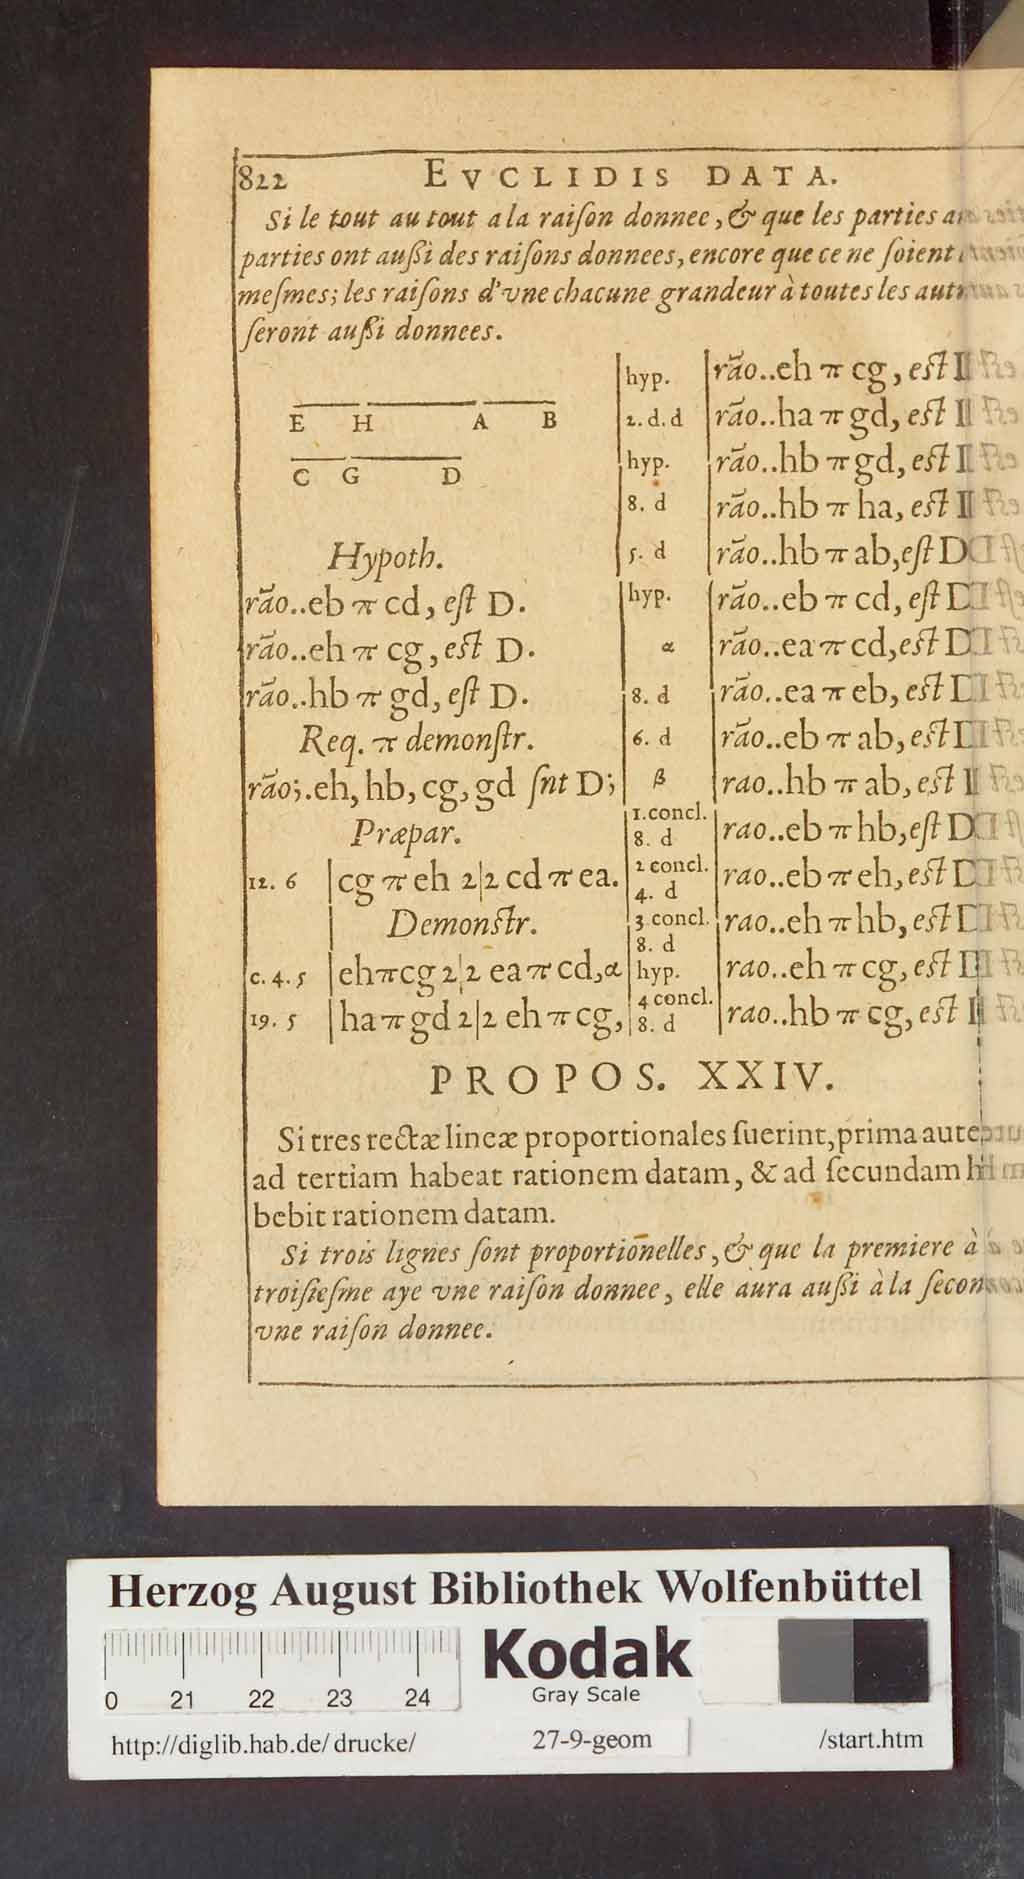 822 EVCLIDIS DATA.
Si le tout au tout a la raiſon donnee, & que les parties
parties ont auſſi des raiſons donnees, encore que ce ne ſoient
meſmes; les raiſons d'vne chacune grandeur à toutes les
ſeront auſſi donnees.
E H A B
C G D
Hypoth.
rão..eb π cd, eſt D.
rão..eh π cg, eſt D.
rão..hb π gd, eſt D.
Req. π demonſtr.
rão;.eh, hb, cg, gd ſnt D;
Præpar.
12. 6 |cg π eh 2|2 cd π ea.
Demonſtr.
c. 4. 5 |eh π cg 2|2 ea π cd, α
19. 5 |ha π gd 2|2 eh π cg,
hyp. |rão..eh π cg, eſt
2. d. d |rão..ha π gd, eſt
hyp. |rão..hb π gd, eſt
8. d |rão..hb π ha, eſt
5. d |rão..hb π ab, eſt D
hyp. |rão..eb π cd, eſt D
α |rão..ea π cd, eſt D
8. d |rão..ea π eb, eſt
6. d |rão..eb π ab, eſt
β |rao..hb π ab, eſt
1. concl.
8. d |rao..eb π hb, eſt D
2 concl.
4. d |rao..eb π eh, eſt
3 concl.
8. d |rao..eh π hb, eſt
hyp. |rao..eh π cg, eſt
4 concl.
8. d |rao..hb π cg, eſt
PROPOS. XXIV.
Si tres rectæ lineæ proportionales fuerint, prima
ad tertiam habeat rationem datam, & ad ſecundam
bebit rationem datam.
Si trois lignes ſont proportionelles, & que la premiere à
troiſieſme aye vne raiſon donnee, elle aura auſſi à la
vne raiſon donnee.
Herzog August Bibliothek Wolfenbüttel
0 21 22 23 24
Kodak
Gray Scale
http://diglib.hab.de/drucke/ 27-9-geom /start.htm